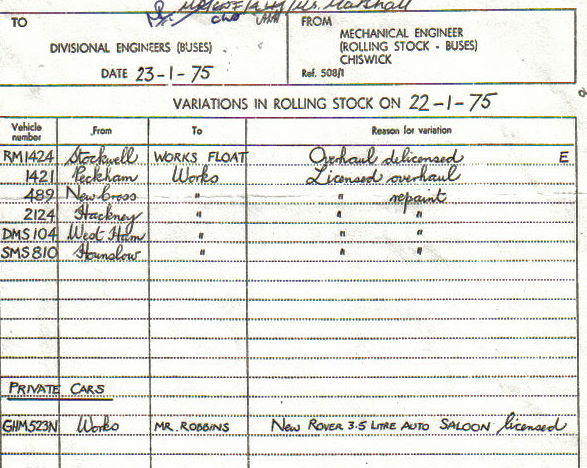 Marshall
TO
DIVISIONAL ENGINEERS (BUSES)
DATE 23-1-75
FROM
MECHANICAL ENGINEER
(ROLLING STOCK - BUSES)
CHISWICK
Ref. 508/1
VARIATIONS IN ROLLING STOCK ON 22-1-75
Vehicle number From To Reason for variation
RM1424 Stockwell WORKS FLOAT Overhaul delicensed E
1421 Peckham Works Licensed overhaul
489 New Cross " " repaint
2124 Hackney " " "
DMS104 West Ham " " "
SMS810 Hounslow " " "
PRIVATE CARS
GHM523N Works MR. ROBBINS NEW ROVER 3.5 LITRE AUTO SALOON licensed